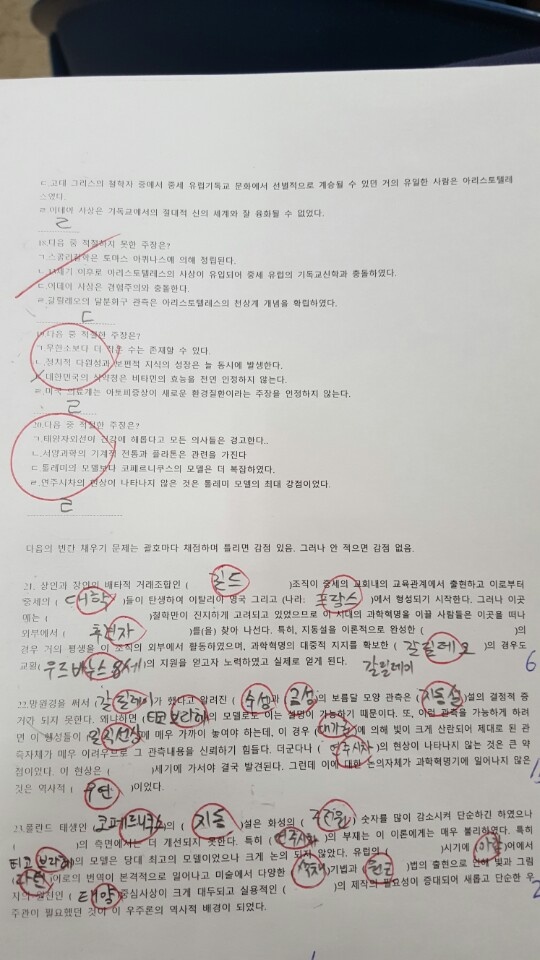 ㄷ.고대 그리스의 철학자 중에서 중세 유럽기독교 문화에서 선별적으로 계승될 수 있던 거의 유일한 사람은 아리스토텔레
스였다.
ㄹ.이데아 사상은 기독교에서의 절대적 신의 세계와 잘 융화될 수 없었다.
ㄹ
18.다음 중 적절하지 못한 주장은?
ㄱ.스콜라철학은 토마스 아퀴나스에 의해 정립된다.
ㄴ.12세기 이후로 아리스토텔레스의 사상이 유입되어 중세 유럽의 기독교신학과 충돌하였다.
ㄷ.이데아 사상은 경험주의와 충돌한다.
ㄹ.갈릴레오의 달분화구 관측은 아리스토텔레스의 천상계 개념을 확립하였다.
ㄷ
19.다음 중 적절한 주장은?
ㄱ.무한소보다 더 작은 수는 존재할 수 있다.
ㄴ.정치적 다원성과 보편적 지식의 성장은 늘 동시에 발생한다.
ㄷ.대한민국의 식약청은 비타민의 효능을 전면 인정하지 않는다.
ㄹ.미국 의료계는 아토피증상이 새로운 환경질환이라는 주장을 인정하지 않는다.
ㄹ
20.다음 중 적절한 주장은?
ㄱ.태양자외선이 건강에 해롭다고 모든 의사들은 경고한다..
ㄴ.서양과학의 기계적 전통과 플라톤은 관련을 가진다
ㄷ 톨레미의 모델보다 코페르니쿠스의 모델은 더 복잡하였다.
ㄹ.연주시차의 현상이 나타나지 않은 것은 톨레미 모델의 최대 강점이었다.
ㄹ
다음의 빈칸 채우기 문제는 괄호마다 채점하며 틀리면 감점 있음. 그러나 안 적으면 감점 없음.
21. 상인과 장인의 배타적 거래조합인 ( 길드 )조직이 중세의 교회내의 교육관계에서 출현하고 이로부터
중세의 ( 대학 )들이 탄생하여 이탈리아 영국 그리고 (나라: 프랑스 )에서 형성되기 시작한다. 그러나 이곳
에는 ( )철학만이 진지하게 고려되고 있었으므로 이 시대의 과학혁명을 이끌 사람들은 이곳을 떠나
외부에서 ( 후원자 )를(을) 찾아 나선다. 특히, 지동설을 이론적으로 완성한 ( )의
경우 거의 평생을 이 조직의 외부에서 활동하였으며, 과학혁명의 대중적 지지를 확보한 ( 갈릴레오 )의 경우도
교황( 우르바누스 8세 )의 지원을 얻고자 노력하였고 실제로 얻게 된다. 갈릴레이
6
22.망원경을 써서 ( 갈릴레이 )가 했다고 알려진 ( 수성 )과 ( 금성 )의 보름달 모양 관측은 ( 지동설 )설의 결정적 증
거간 되지 못한다. 왜냐하면 ( 티코브라헤 )의 모델로도 이는 설명이 가능하기 때문이다. 또, 이런 관측을 가능하게 하려
면 이 현상들이 ( 일직선상 )에 매우 가까이 놓여야 하는데, 이 경우 ( 대기층 )에 의해 빛이 크게 산란되어 제대로 된 관
측자체가 매우 어려우므로 그 관측내용을 신뢰하기 힘들다. 더군다나 ( 연주시차 )의 현상이 나타나지 않는 것은 큰 약
점이었다. 이 현상은 ( )세기에 가서야 결국 발견된다. 그런데 이에 대한 논의자체가 과학혁명기에 일어나지 않은
것은 역사적 ( 우연 )이었다.
23.폴란드 태생인 ( 코페르니쿠스 )의 ( 지동 )설은 화성의 ( 주전원 ) 숫자를 많이 감소시켜 단순하긴 하였으나
( )의 측면에서는 더 개선되지 못한다. 특히 ( 연주시차 )의 부재는 이 이론에게는 매우 불리하였다. 특히
( 티코 브라헤 )의 모델은 당대 최고의 모델이었으나 크게 논의 되지 않았다. 유럽의 ( )시기에 ( 아랍 )어에서
( 라틴 )어로의 번역이 본격적으로 일어나고 미술에서 다양한 ( )기법과 ( 원근 )법의 출현으로 인해 빛과 그림
자의 원천인 ( 태양 )중심사상이 크게 대두되고 실용적인 ( )의 제작의 필요성이 증대되어 새롭고 단순한 우
주관이 필요했던 것이 이 우주론의 역사적 배경이 되었다.